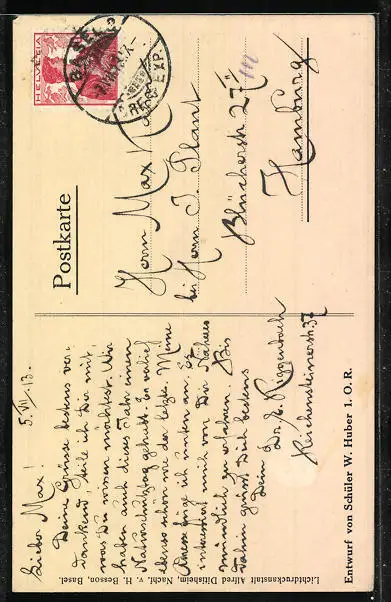 Postkarte
HELVETIA
BASEL 2
BR. EXP.
Herrn Max
bei Herrn J. Plant
Blücherstr 27 III
Hamburg
5. VII. 13.
Lieber Max!
Deine Grüsse bestens ver-
dankend, teile ich Dir mit,
was Du wissen möchtest. Wir
haben auch dieses Jahr einen
Naturschutztag gehabt. Er verlief
ebenso schön wie der letzte. Meine
Adresse füge ich unten an. Es
interessiert mich von Dir Näheres
mündlich zu erfahren. Bis
dahin grüsst Dich bestens
Dein Dr. E. Riggenbach
Reichensteinerstr. 37
Entwurf von Schüler W. Huber I. O.R.
Lichtdruckanstalt Alfred Ditisheim, Nachf. v. H. Besson, Basel.